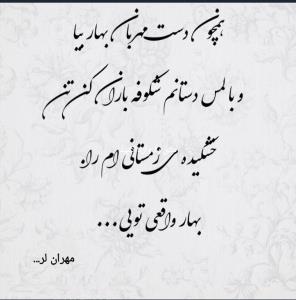 همچون دست مهربان بهار بیا
و با لمس دستانم شکوفه باران کن تن
خشکیده ی زمستانی ام را.
بهار واقعی تویی...
مهران لر...